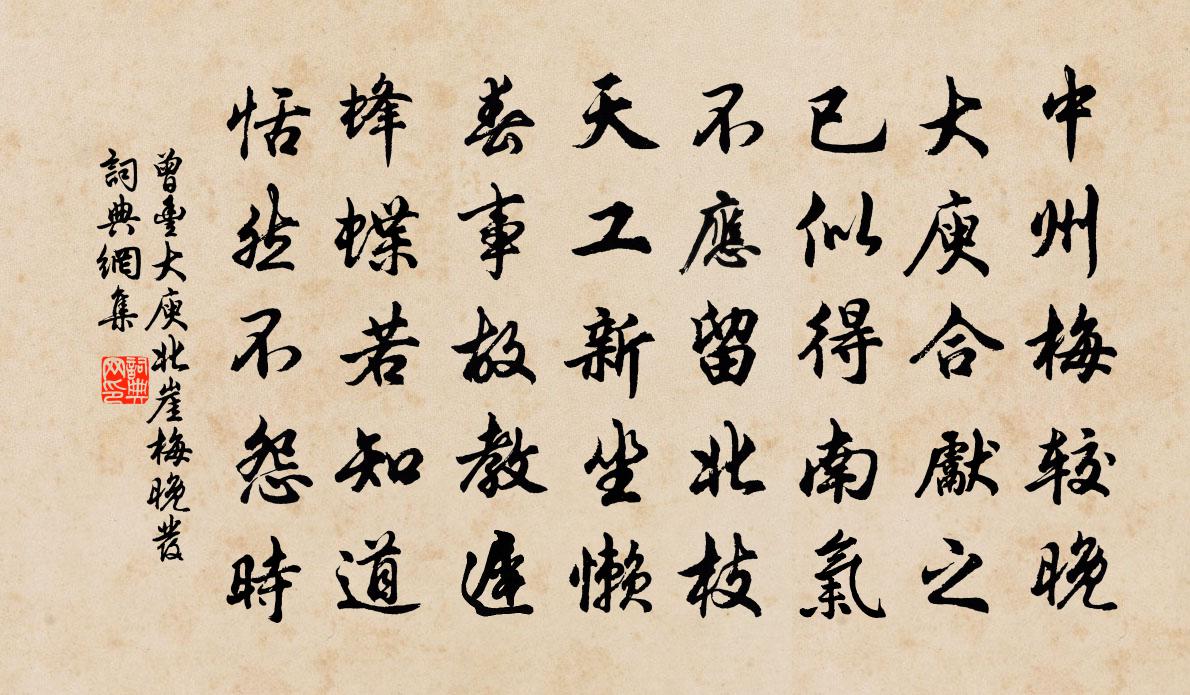 中州梅較晚
大庾合獻之
已似得南氣
不應留北枝
天工新坐懶
春事故教遲
蜂蝶若知道
恬然不怨時
曾豐大庾北崖梅晚發
詞典網集
詞典网印